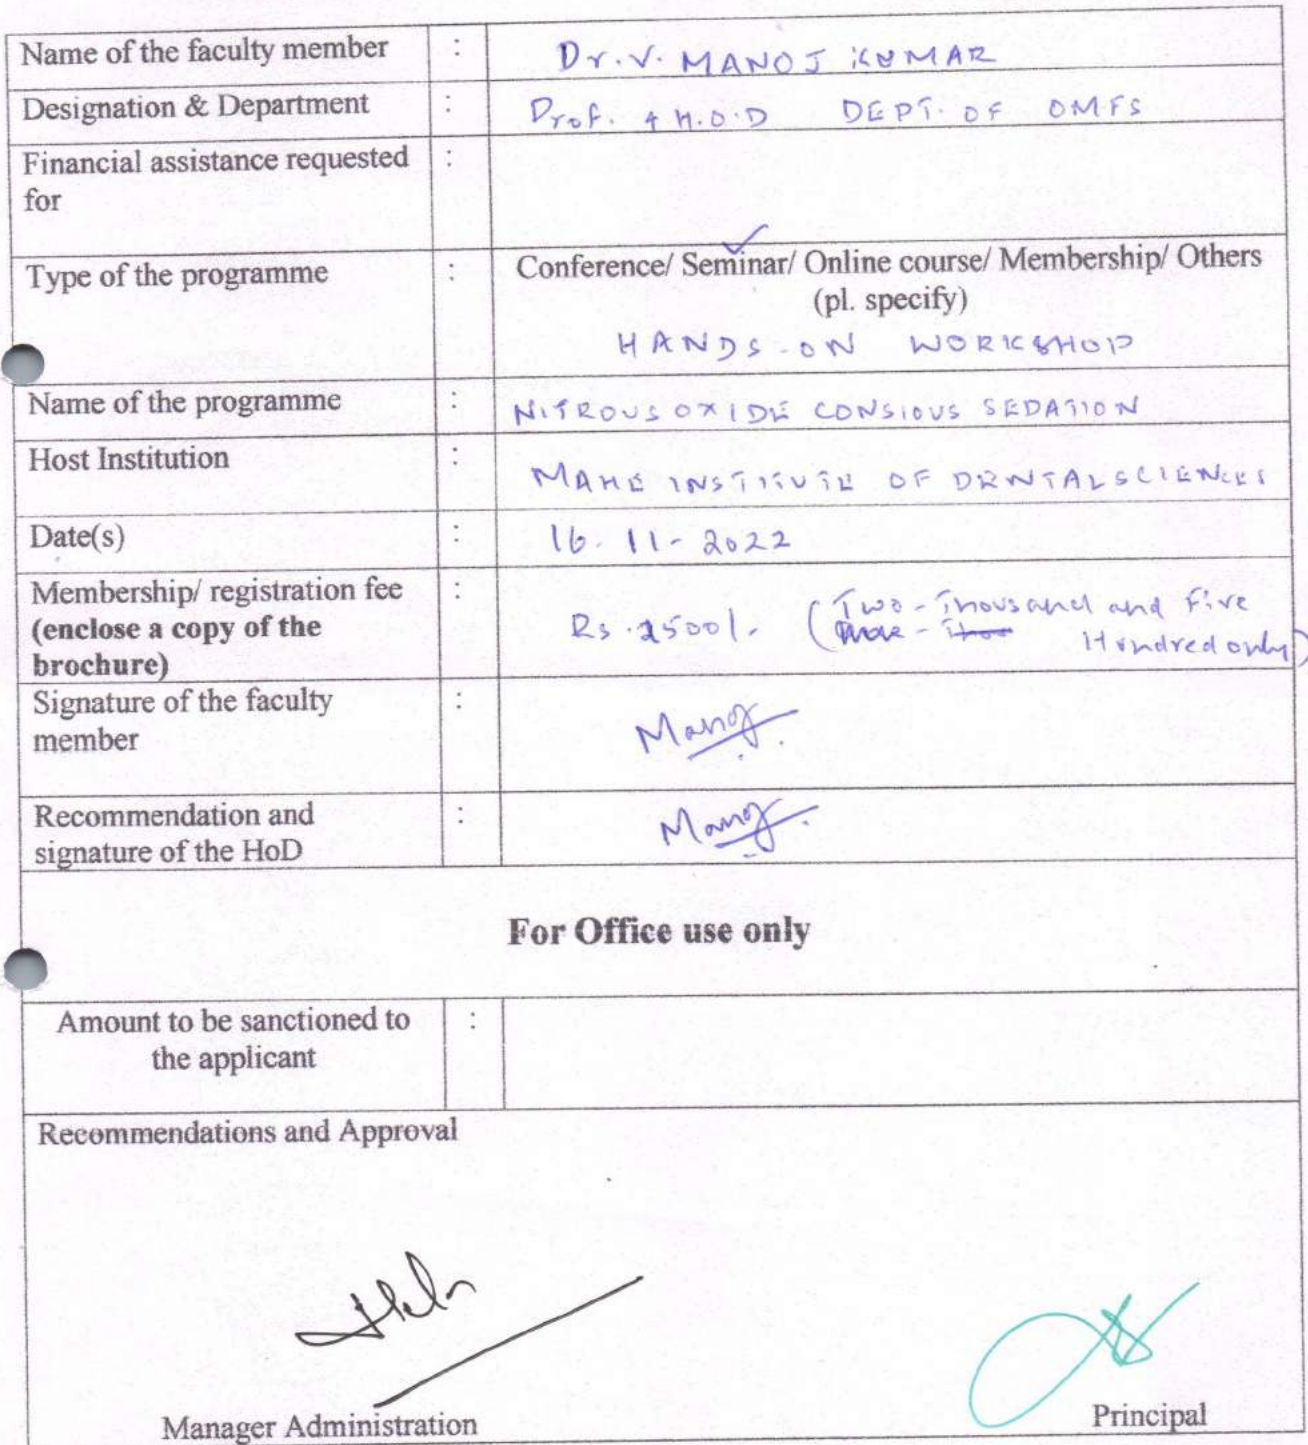 Name of the faculty member : Dr. V. MANOJ KUMAR
Designation & Department : Prof. & H.O.D DEPT. OF OMFS
Financial assistance requested :
for
Type of the programme : Conference/ Seminar/ Online course/ Membership/ Others
(pl. specify)
HANDS-ON WORKSHOP
Name of the programme : NITROUS OXIDE CONSIOUS SEDATION
Host Institution : MAHE INSTITUTE OF DENTAL SCIENCES
Date(s) : 16-11-2022
Membership/ registration fee :
(enclose a copy of the Rs. 2500/- (Two-Thousand and Five
brochure) Hundred only)
Signature of the faculty :
member Manoj
Recommendation and : Manoj
signature of the HoD
For Office use only
Amount to be sanctioned to :
the applicant
Recommendations and Approval
Manager Administration Principal